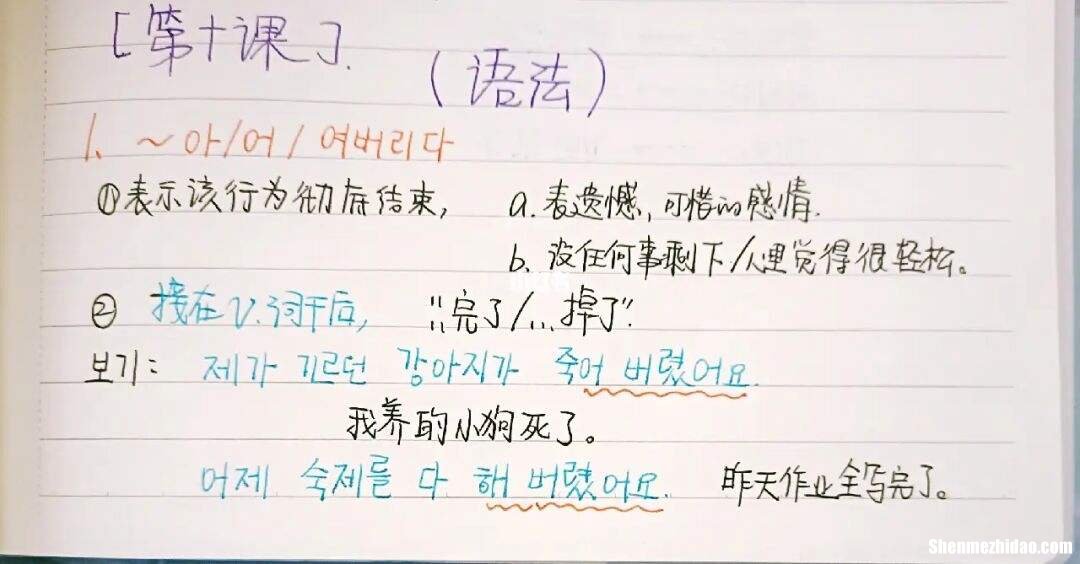 [第十课].
(语法)
1. ~아/어/여버리다
①表示该行为彻底结束, a. 表遗憾, 可惜的感情.
b. 没任何事剩下/心里觉得很轻松。
② 接在V.词干后, "…完了/…掉了".
보기: 제가 기르던 강아지가 죽어 버렸어요.
我养的小狗死了。
어제 숙제를 다 해 버렸어요. 昨天作业全写完了。
Shenmezhidao.com